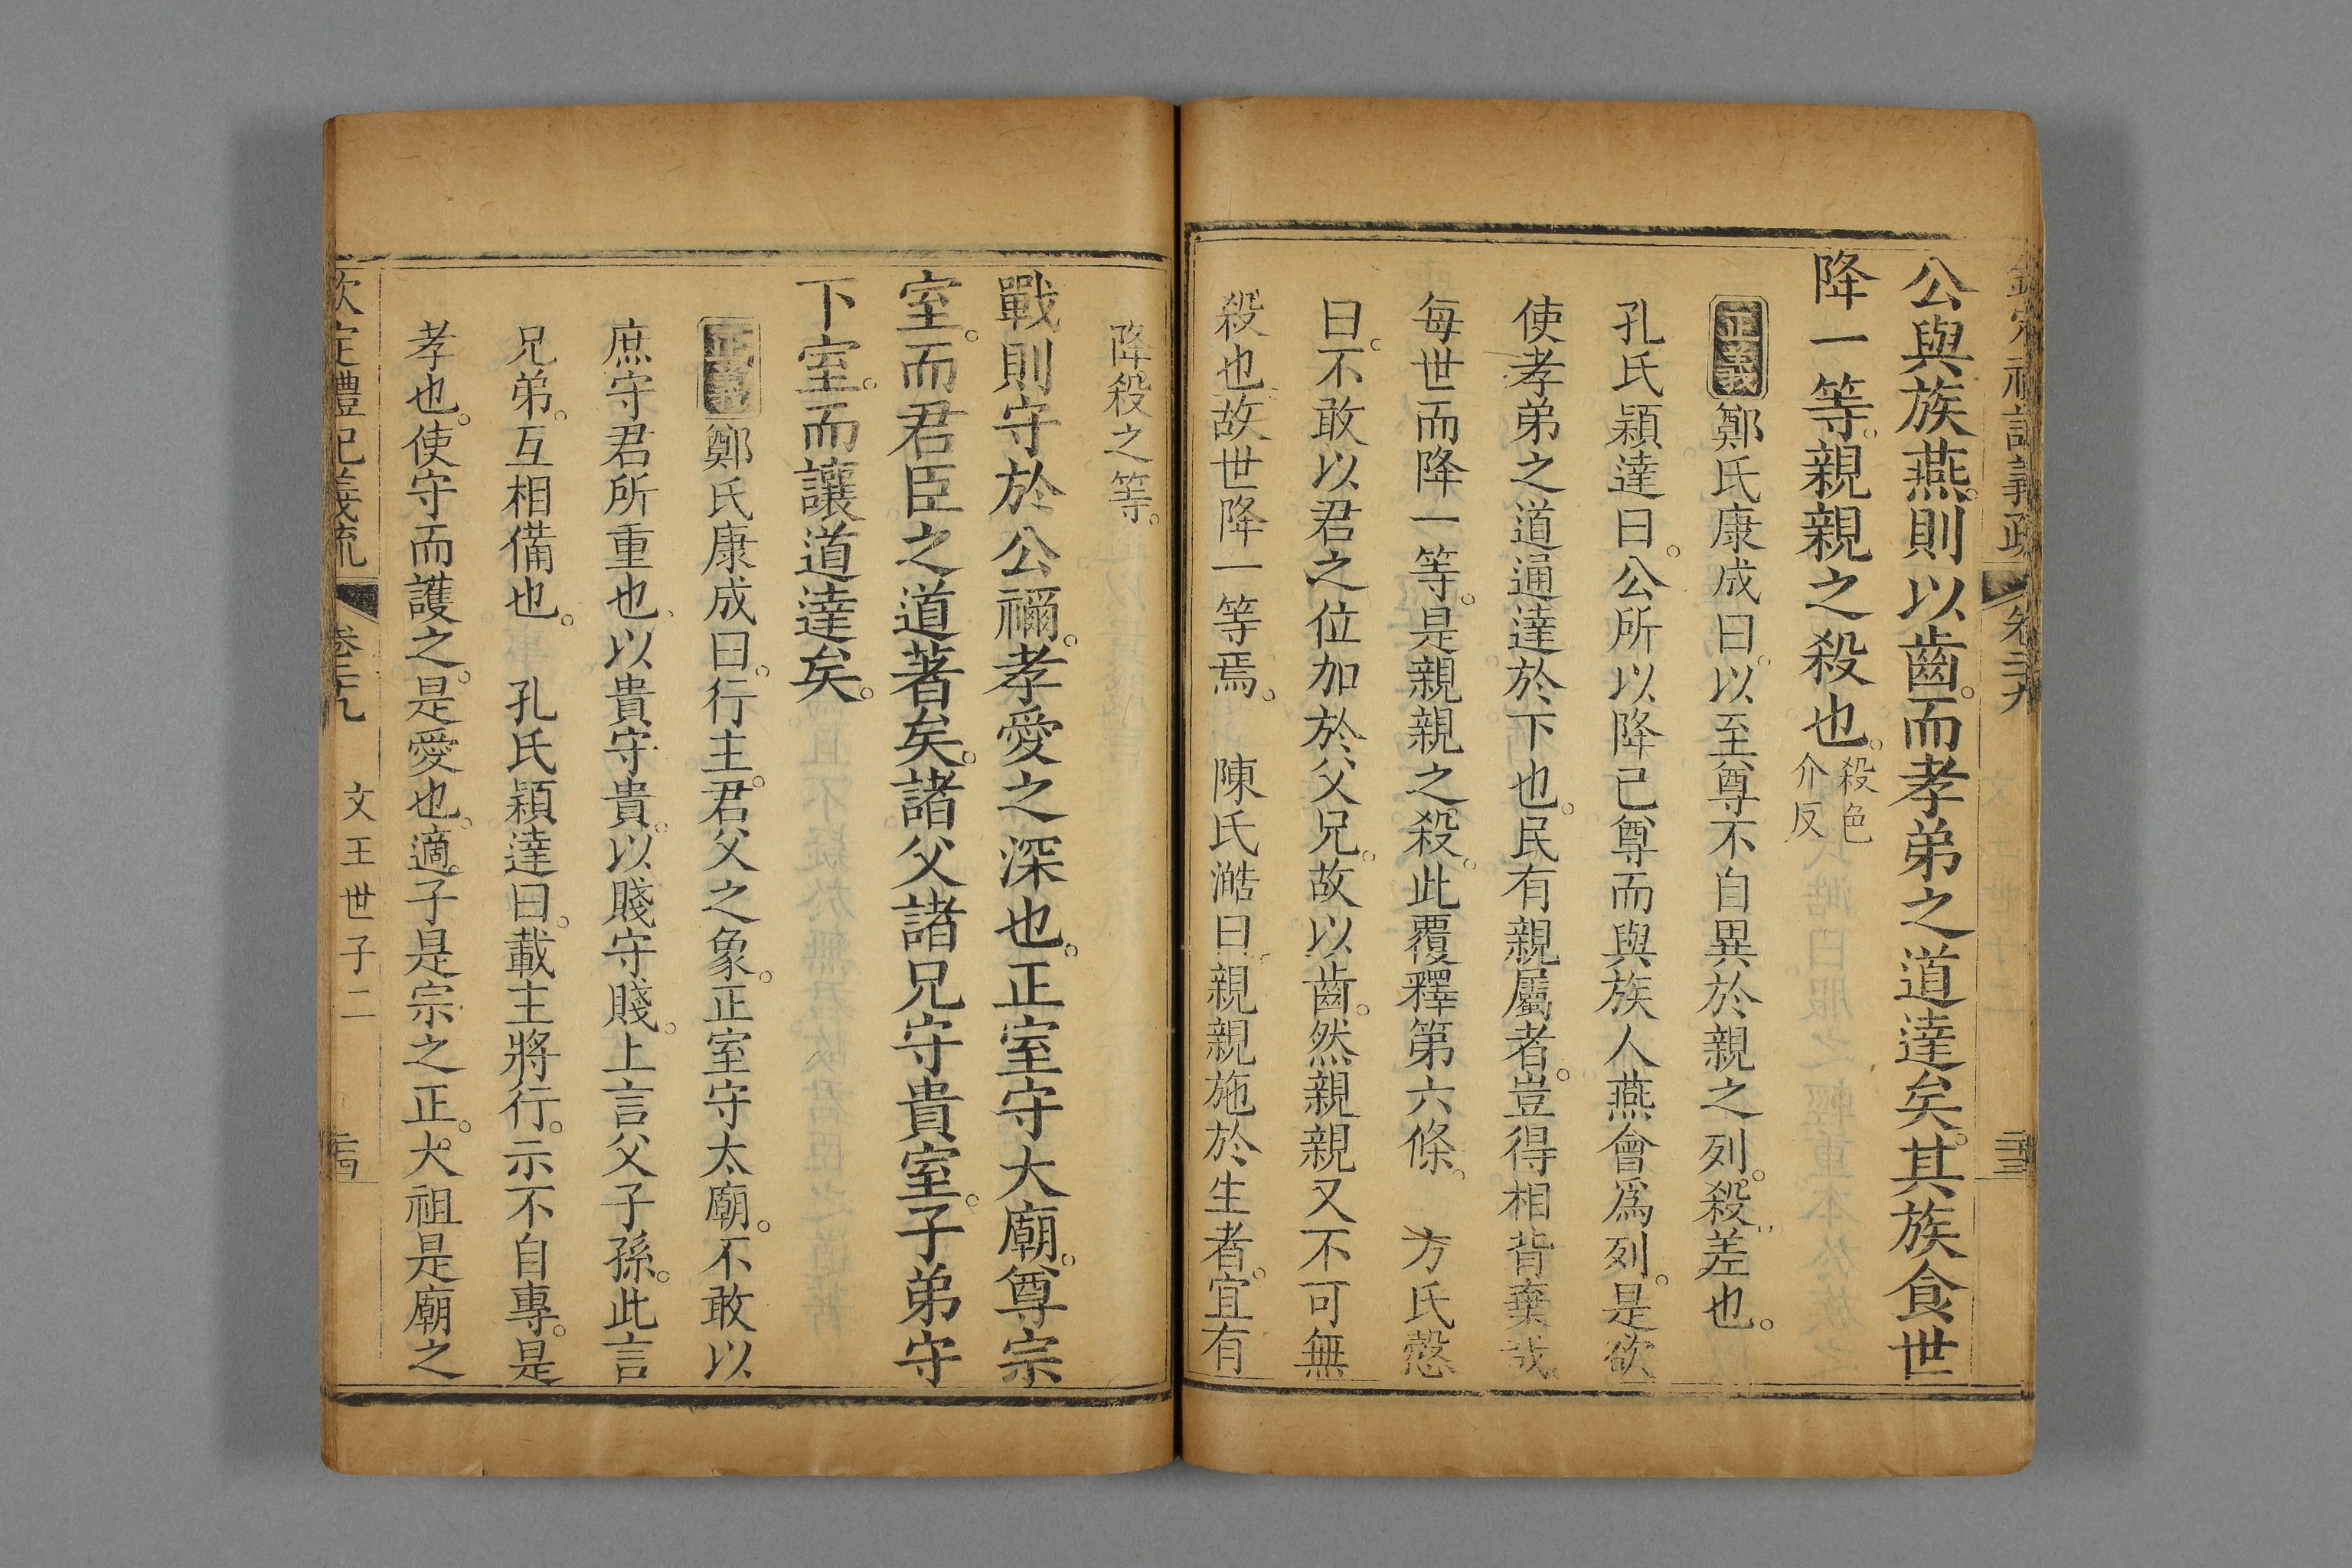 欽定禮記義疏 卷二十九 二十三
公與族燕。則以齒。而孝弟之道達矣。其族食世
降一等。親親之殺也。殺色介反
正義鄭氏康成曰。以至尊不自異於親之列。殺差也。
孔氏穎達曰。公所以降已尊而與族人燕會為列。是欲
使孝弟之道通達於下也。民有親屬者。豈得相背棄哉
每世而降一等。是親親之殺。此覆釋第六條、 方氏慤
曰。不敢以君之位加於父兄。故以齒。然親親又不可無
殺也。故世降一等焉。 陳氏澔曰。親親施於生者。宜有
降殺之等。
戰則守於公禰。孝愛之深也。正室守大廟。尊宗
室。而君臣之道著矣。諸父諸兄守貴室。子弟守
下室。而讓道達矣。
正義鄭氏康成曰。行主。君父之象。正室守太廟。不敢以
庶守君所重也、以貴守貴。以賤守賤。上言父子孫。此言
兄弟。互相備也。 孔氏穎達曰。載主將行。示不自專。是
孝也。使守而護之。是愛也。適子是宗之正。大祖是廟之
欽定禮記義疏 卷二十九 文王世子二 二十四